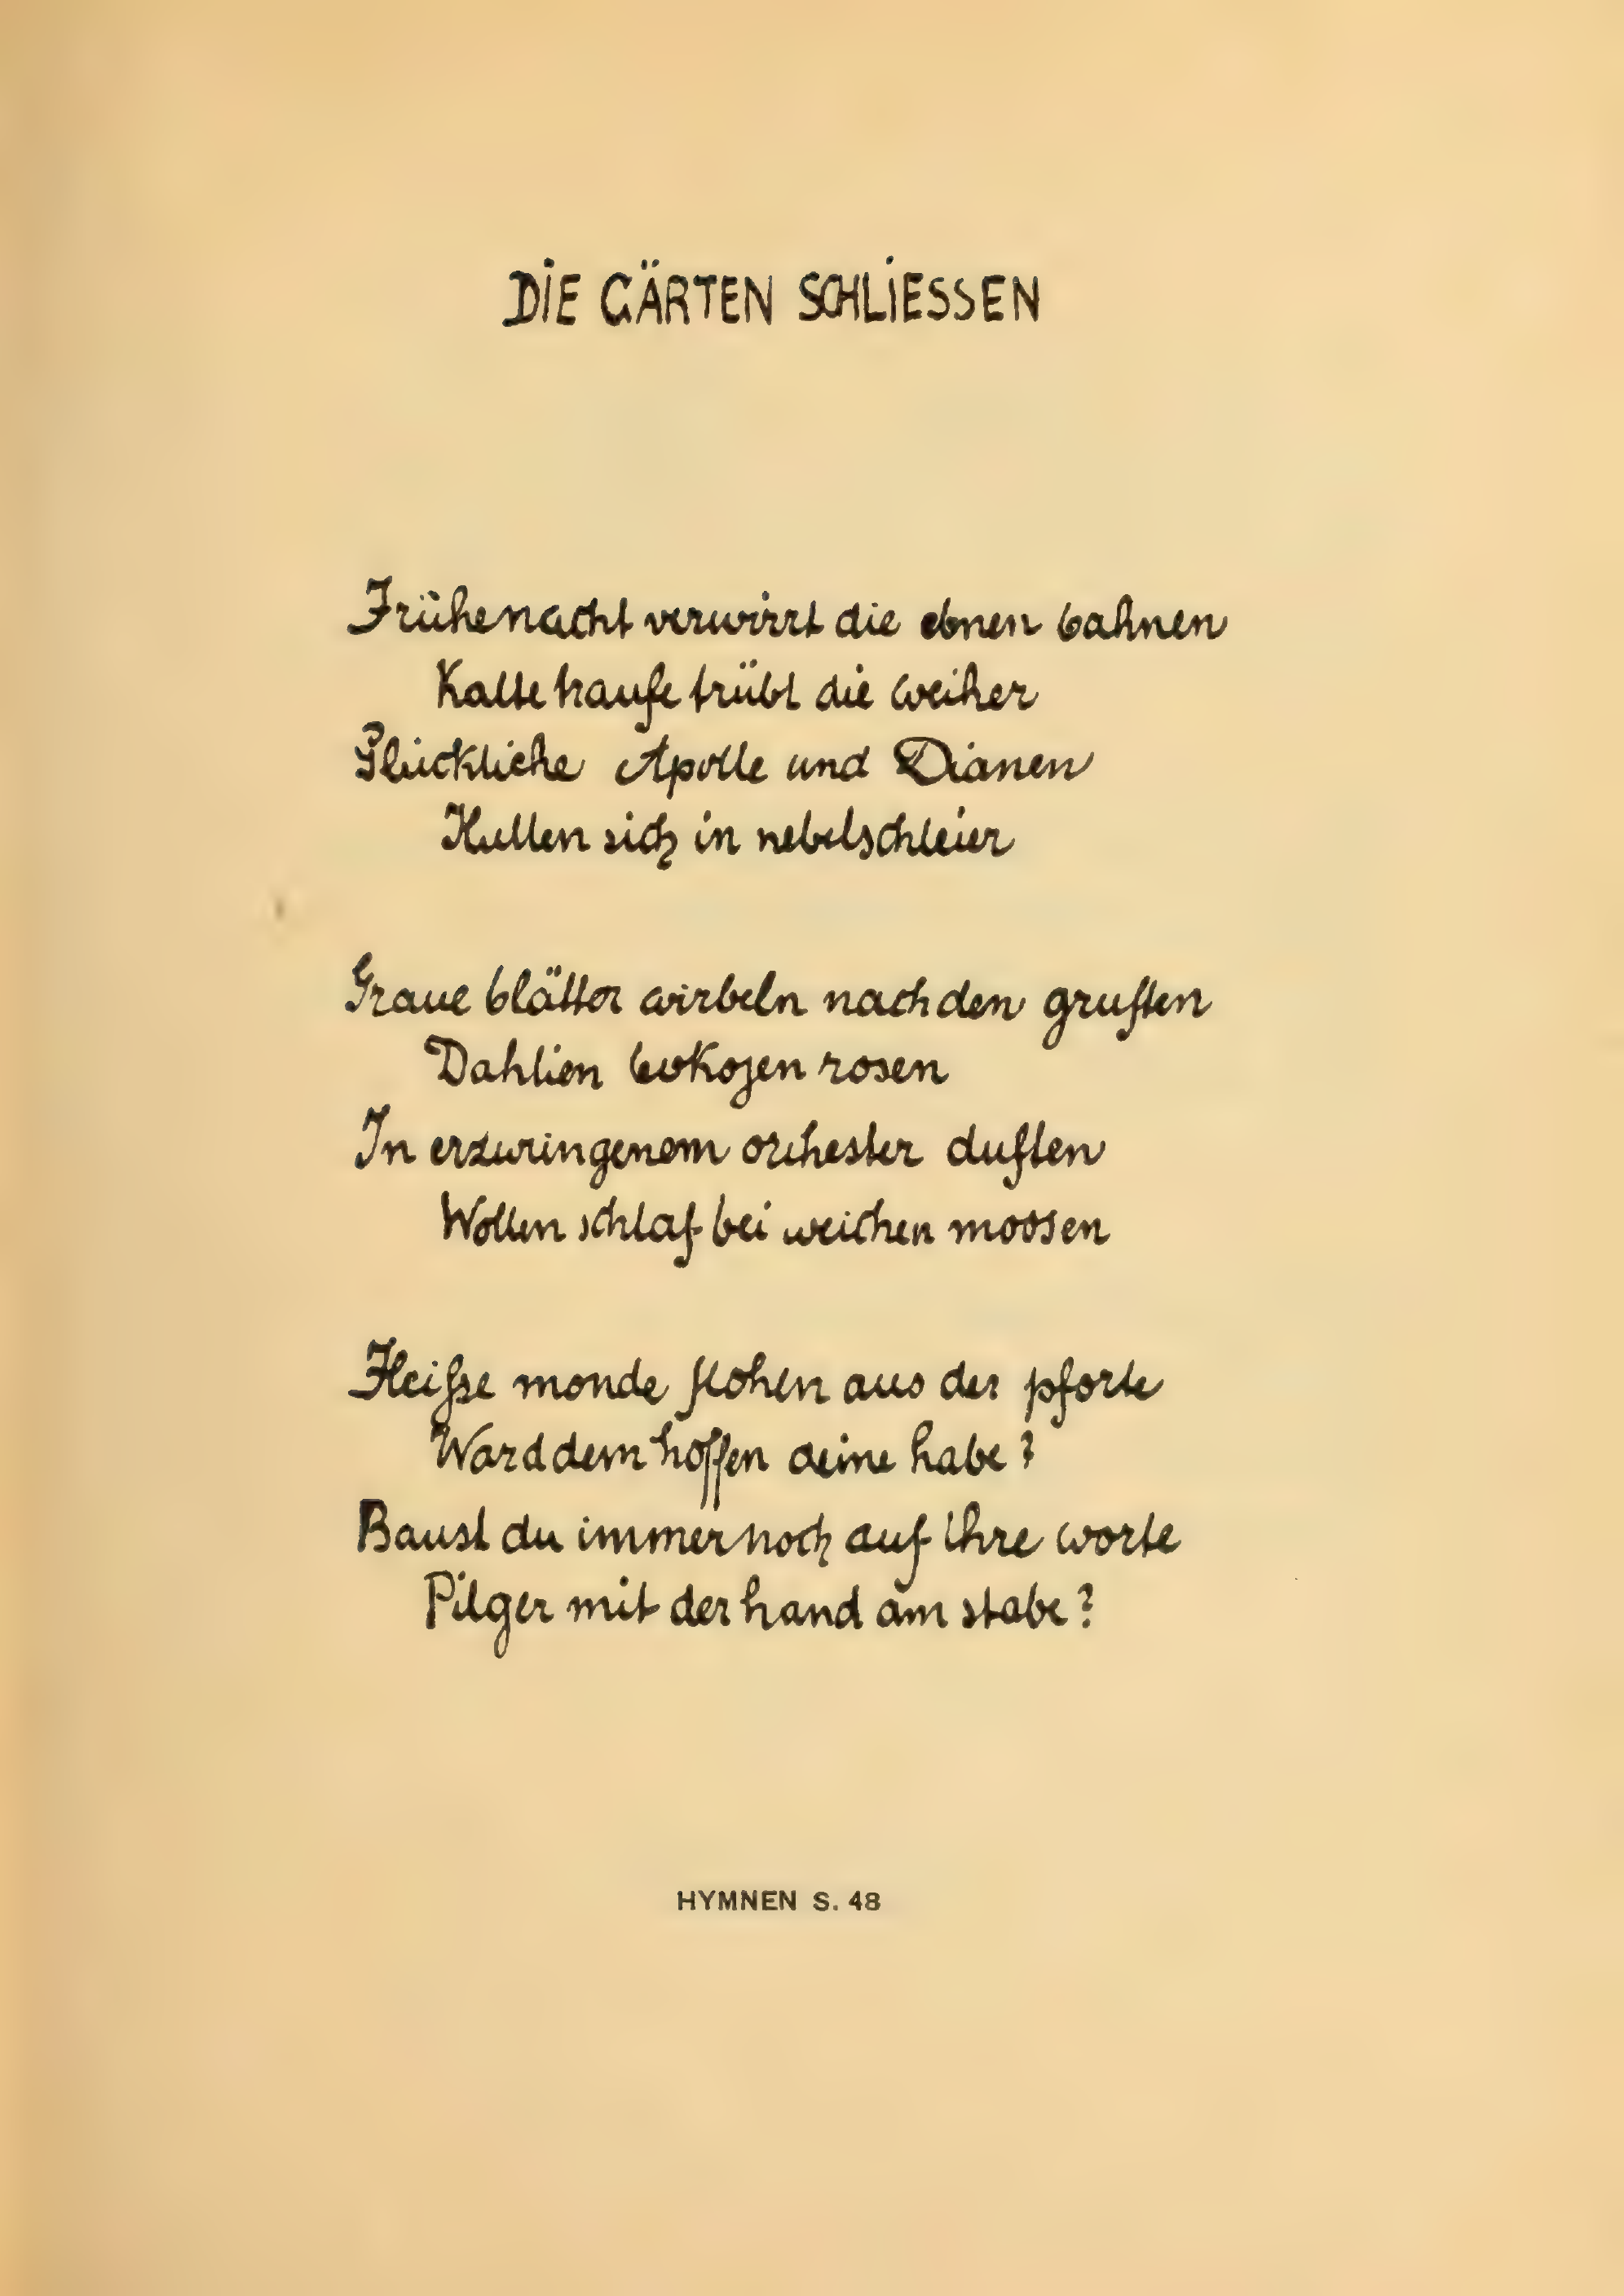 DIE GÄRTEN SCHLIESSEN
Frühe nacht verwirrt die ebnen bahnen
Kalte traufe trübt die weiher
Glückliche Apolle und Dianen
Hullen sich in nebelschleier
Graue blätter wirbeln nach den gruften
Dahlien levkojen rosen
In erzwungenem orchester duften
Wollen schlaf bei weichen moosen
Heisse monde flohen aus der pforte
Ward dem hoffen deine habe?
Baust du immer noch auf ihre worte
Pilger mit der hand am stabe?
HYMNEN S. 48